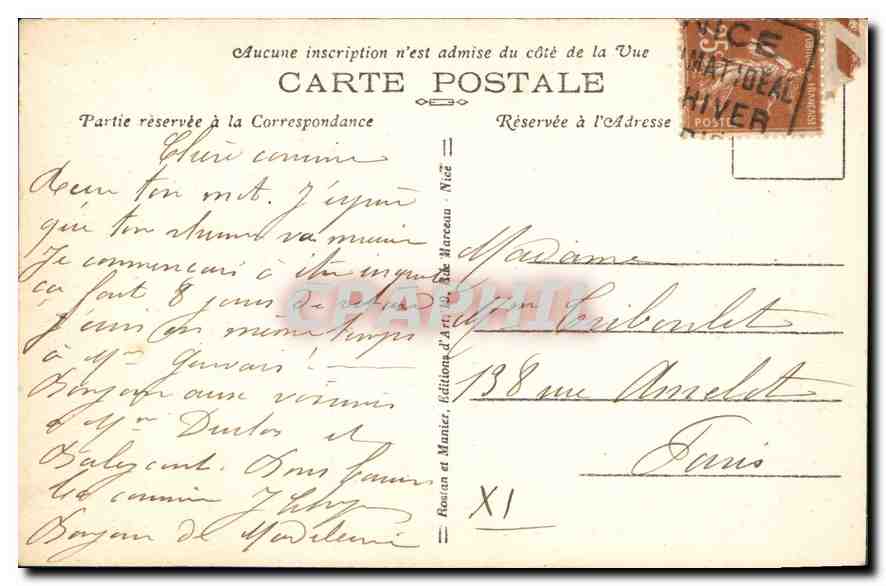 Aucune inscription n'est admise du côté de la Vue
CARTE POSTALE
Partie réservée à la Correspondance
Réservée à l'Adresse
NICE
IMAT IDEAL
HIVER
35
POSTES
Chère cousine
Reçu ton mot. J'espère
que ton rhume va mieux
Je commençais à être inquiète
ça fait 8 jours de retard
J'écris en même temps
à Mme Gervais !
Bonjour aux voisins
à Mr Duclos et
Bons baisers
ta cousine
Bonjour de Madeleine
Rostan et Munier, Editions d'Art, 10, Rue Marceau - Nice
CPAPHIL
Madame
Mme Triboulet
138 rue Amelot
Paris
XI